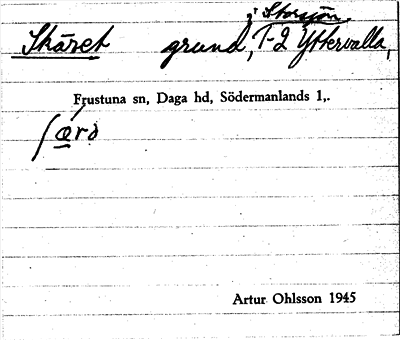 i Storsjön.
Skäret grund, T-2 Yttervalla,
Frustuna sn, Daga hd, Södermanlands l,.
Artur Ohlsson 1945